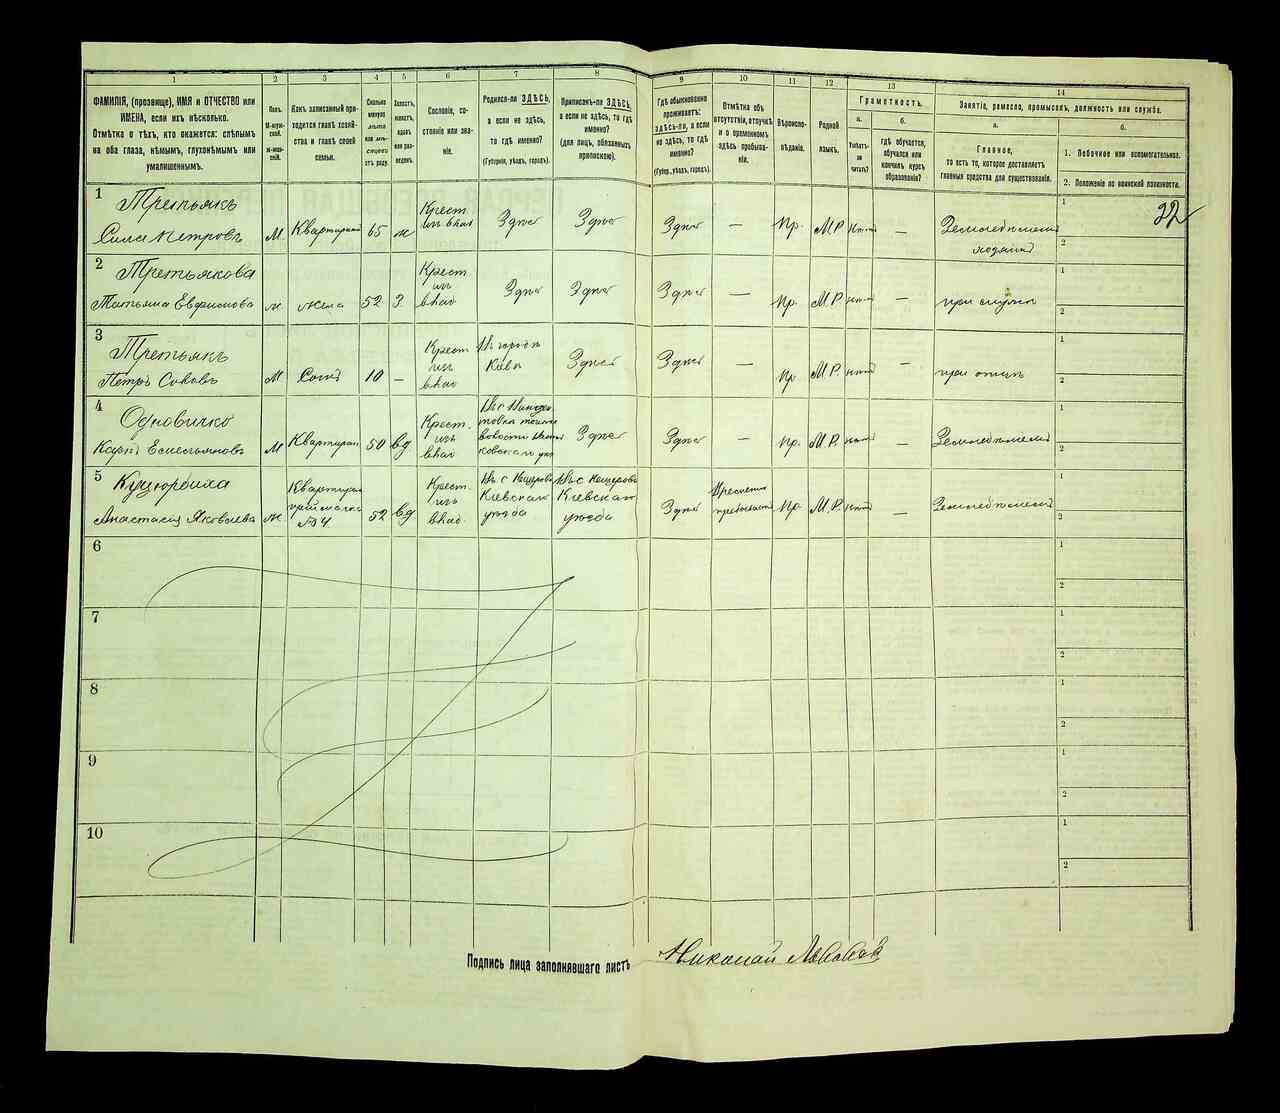 1 2 3 4 5 6 7 8 9 10 11 12 13 14
ФАМИЛІЯ, (прозвище), ИМЯ и ОТЧЕСТВО или
ИМЕНА, если ихъ нѣсколько.
Отмѣтка о тѣхъ, кто окажется: слѣпымъ
на оба глаза, нѣмымъ, глухонѣмымъ или
умалишеннымъ.
Полъ.
М-мужской.
ж-женскій.
Какъ записанный при-
ходится главѣ хозяй-
ства и главѣ своей
семьи.
Сколько
минуло
лѣтъ
или мѣ-
сяцевъ
отъ роду.
Холостъ,
женатъ,
вдовъ
или раз-
веденъ.
Сословіе, со-
стояніе или зва-
ніе.
Родился-ли ЗДѢСЬ,
а если не здѣсь,
то гдѣ именно?
(Губернія, уѣздъ, городъ).
Приписанъ-ли ЗДѢСЬ,
а если не здѣсь, то гдѣ
именно?
(для лицъ, обязанныхъ
припискою).
Гдѣ обыкновенно
проживаетъ:
здѣсь-ли, а если
не здѣсь, то гдѣ
именно?
(Губер., уѣздъ, городъ).
Отмѣтка объ
отсутствіи, отлучкѣ
и о временномъ
здѣсь пребыва-
ніи.
Вѣроиспо-
вѣданіе.
Родной
языкъ.
Грамотность.
а.
Умѣетъ-
ли
читать?
б.
гдѣ обучается,
обучался или
кончилъ курсъ
образованія?
Занятіе, ремесло, промыселъ, должность или служба.
а.
Главное,
то есть то, которое доставляетъ
главныя средства для существованія.
б.
1. Побочное или вспомогательное.
2. Положеніе по воинской повинности.
22
1 Третьякъ
Сила Петровъ М Квартирант 65 ж Крест. изъ влад Здѣсь Здѣсь Здѣсь — Пр. М.Р. нѣтъ — Земледѣлецъ
1
2
2 Третьякова
Татьяна ж жена 52 З Крест. изъ влад Здѣсь Здѣсь Здѣсь — Пр. М.Р. нѣтъ — при мужѣ
1
2
3 Третьякъ
Петръ М Сынъ 10 — Крест. изъ влад Въ городѣ Кіевѣ Здѣсь Здѣсь — Пр. М.Р. нѣтъ — при отцѣ
1
2
4
Карпъ Емельяновъ М Квартирант 50 вд Крест. изъ влад Въ с Здѣсь Здѣсь — Пр. М.Р. нѣтъ — Земледѣлецъ
1
2
5
Анастасія Яковлева ж Квартирант № 4 52 вд Крест. изъ влад. Въ с Кіевскаго уѣзда Въ с Кіевскаго уѣзда Здѣсь Временно Пр. М.Р. нѣтъ — Земледѣлецъ
1
2
6
1
2
7
1
2
8
1
2
9
1
2
10
1
2
Подпись лица заполнявшаго листъ Николай